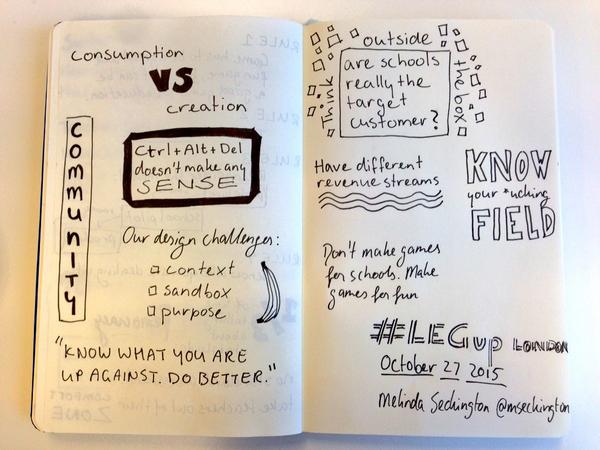 consumption
VS
creation
COMMUNITY
Ctrl+Alt+Del
doesn't make any
SENSE
Our design challenges:
context
sandbox
purpose
"KNOW WHAT YOU ARE
UP AGAINST. DO BETTER."
Think
outside
the box
are schools
really the
target
customer?
Have different
revenue streams
KNOW
your *uching
FIELD
Don't make games
for schools. Make
games for fun
#LEGup LONDON
October 27 2015
Melinda Seckington @mseckington
RULE 1
ZONE